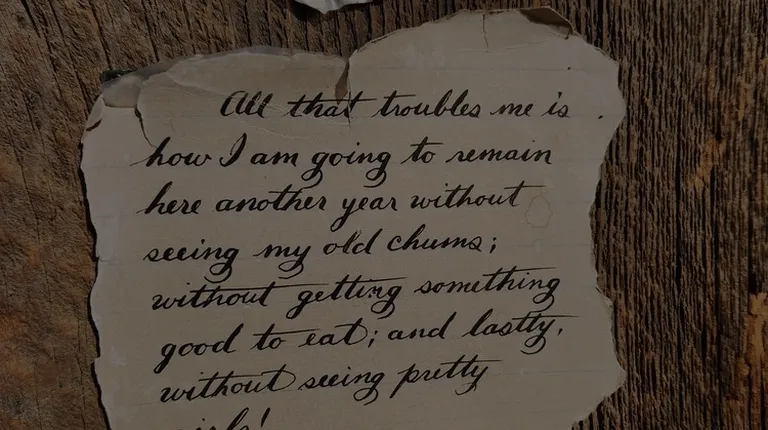 All that troubles me is
how I am going to remain
here another year without
seeing my old chums;
without getting something
good to eat; and lastly,
without seeing pretty